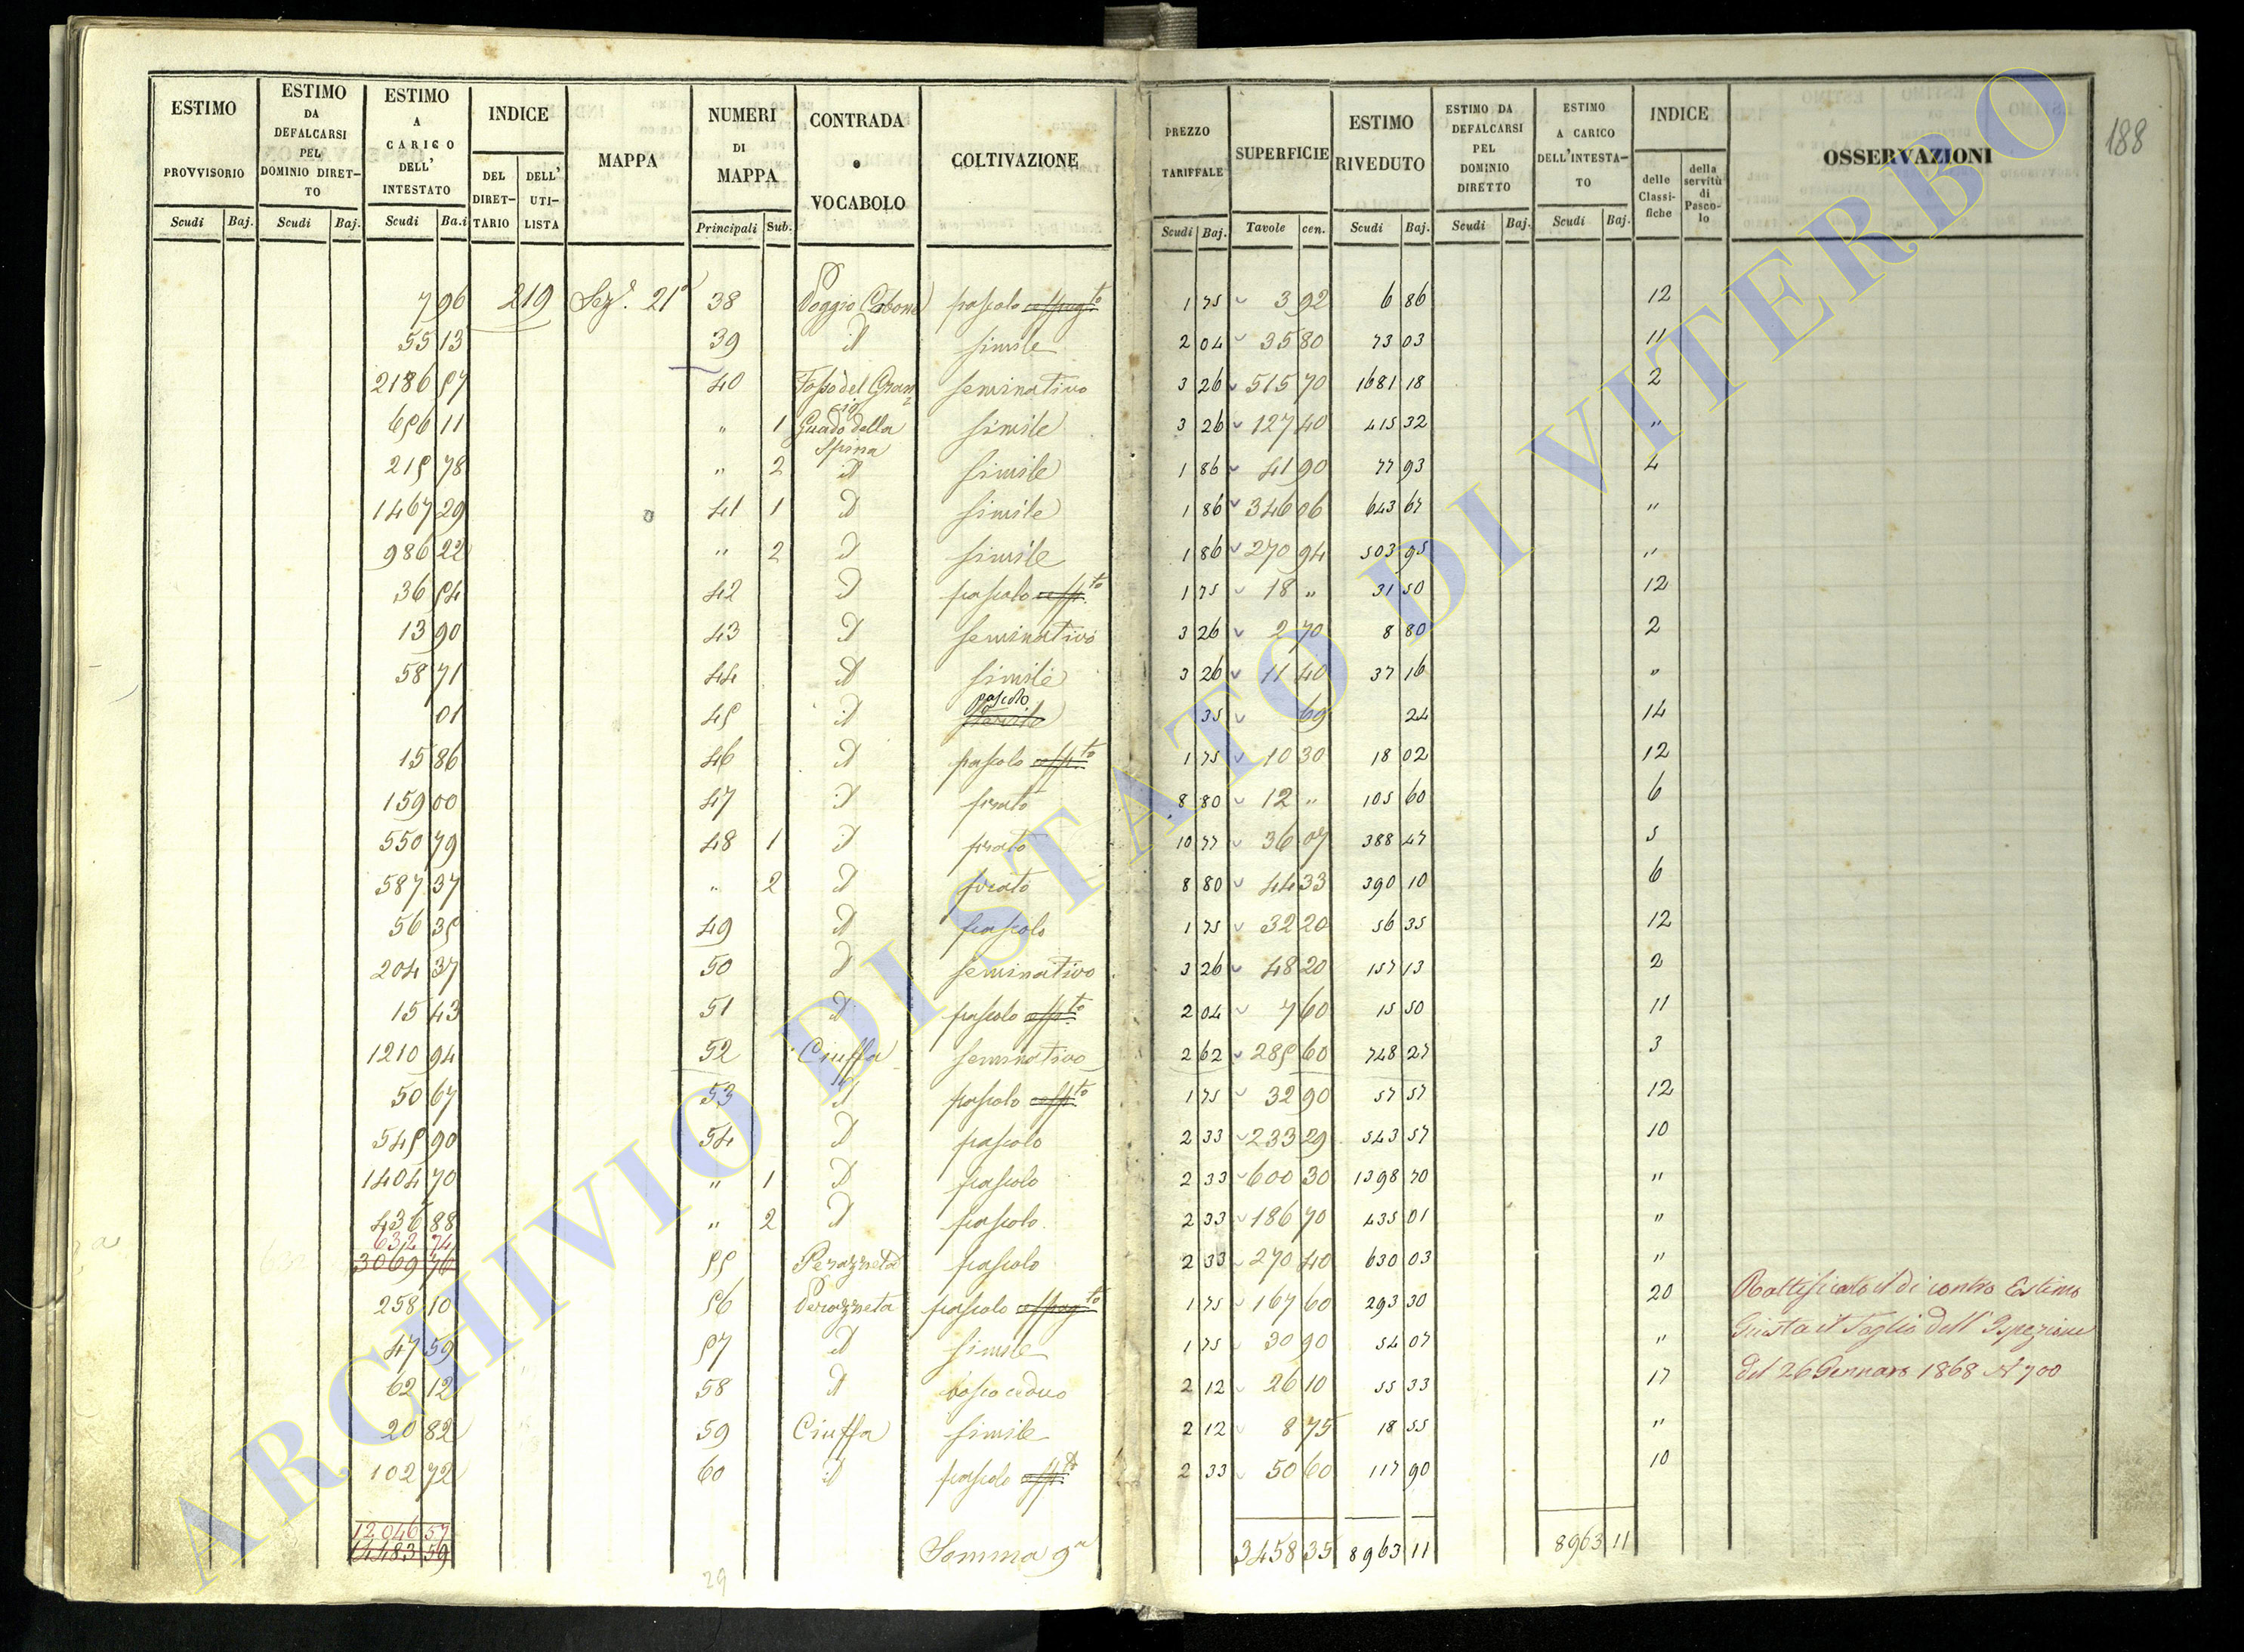 188
ESTIMO PROVVISORIO Scudi Baj.
ESTIMO DA DEFALCARSI PEL DOMINIO DIRET-TO Scudi Baj.
ESTIMO A CARICO DELL' INTESTATO Scudi Ba.i
INDICE DEL DIRET-TARIO DELL' UTI-LISTA
MAPPA
NUMERI DI MAPPA Principali Sub.
CONTRADA o VOCABOLO
COLTIVAZIONE
PREZZO TARIFFALE Scudi Baj.
SUPERFICIE Tavole cen.
ESTIMO RIVEDUTO Scudi Baj.
ESTIMO DA DEFALCARSI PEL DOMINIO DIRETTO Scudi Baj.
ESTIMO A CARICO DELL'INTESTA-TO Scudi Baj.
INDICE delle Classi-fiche della servitù di Pasco-lo
OSSERVAZIONI
7 96 219 Sez.e 21a 38 Poggio Cobone pascolo 1 75 3 92 6 86 12
55 13 39 id simile 2 04 35 80 73 03 11
2186 57 40 Fosso del Grancio seminativo 3 26 515 70 1681 18 2
656 11 " 1 Guado della Spina simile 3 26 127 40 415 32 "
215 78 " 2 id simile 1 86 41 90 77 93 4
1467 29 41 1 id simile 1 86 346 06 643 67 "
986 22 " 2 id simile 1 86 270 94 503 95 "
36 54 42 id pascolo 1 75 18 " 31 50 12
13 90 43 id seminativo 3 26 2 70 8 80 2
58 71 44 id simile 3 26 11 40 37 16 "
01 45 id pascolo 35 69 24 14
15 86 46 id pascolo 1 75 10 30 18 02 12
159 00 47 id prato 8 80 12 " 105 60 6
550 79 48 1 id prato 10 77 36 07 388 47 5
587 37 " 2 id prato 8 80 44 33 390 10 6
56 35 49 id pascolo 1 75 32 20 56 35 12
204 37 50 id seminativo 3 26 48 20 157 13 2
15 43 51 id pascolo 2 04 7 60 15 50 11
1210 94 52 Ciuffa seminativo 2 62 285 60 748 27 3
50 67 53 id pascolo 1 75 32 90 57 57 12
545 90 54 id pascolo 2 33 233 29 543 57 10
1404 70 " 1 id pascolo 2 33 600 30 1398 70 "
436 88 " 2 id pascolo 2 33 186 70 435 01 "
632 74
3069 76 55 Perazzeta pascolo 2 33 270 40 630 03 "
258 10 56 Perazzeta pascolo 1 75 167 60 293 30 20 Rattificato il di contro Estimo
47 59 57 id simile 1 75 30 90 54 07 " Giusta il Foglio dell' Ispezione
62 12 58 id bosco ceduo 2 12 26 10 55 33 17 del 26 Gennaro 1868 N 700
20 82 59 Ciuffa simile 2 12 8 75 18 55 "
102 72 60 id pascolo 2 33 50 60 117 90 10
12046 57
14483 59 Somma 3458 35 8963 11 8963 11
29
ARCHIVIO DI STATO DI VITERBO